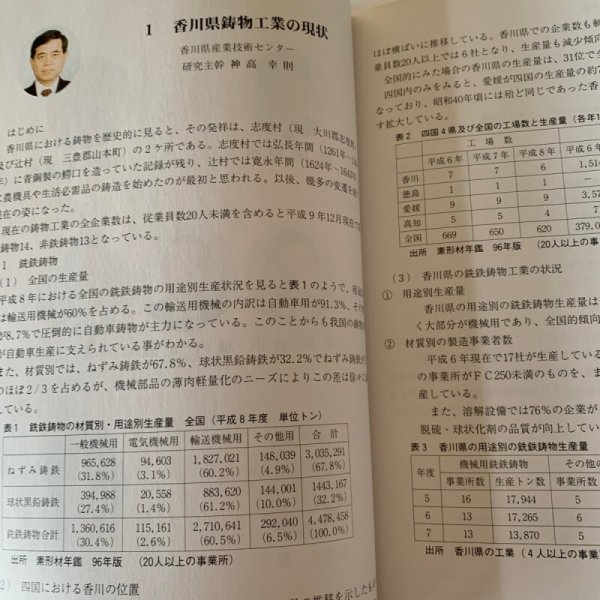 1　香川県鋳物工業の現状
香川県産業技術センター
研究主幹 神高 幸則
はじめに
香川県における鋳物を歴史的に見ると、その発祥は、志度村（現　大川郡志度町
及び辻村（現　三豊郡山本町）の２ケ所である。志度村では弘長年間（1261年〜12
に青銅製の鰐口を造っていた記録が残り、辻村では寛永年間（1624年〜1643年
に農機具や生活必需品の鋳造を始めたのが最初と思われる。以後、幾多の変遷を経
現在の姿になった。
現在の鋳物工業の全企業数は、従業員数20人未満を含めると平成９年12月現在で
鋳物14、非鉄鋳物13となっている。
1　銑鉄鋳物
（1）　全国の生産量
平成８年における全国の銑鉄鋳物の用途別生産状況を見ると表１のようで、用
は輸送用機械が60％を占める。この輸送用機械の内訳は自動車用が91.3%、その
が8.7%で圧倒的に自動車鋳物が主力になっている。このことからも我国の鋳物
が自動車生産に支えられている事がわかる。
また、材質別では、ねずみ鋳鉄が67.8%、球状黒鉛鋳鉄が32.2%でねずみ鋳
のほぼ2/3を占めるが、機械部品の薄肉軽量化のニーズによりこの差は徐々に
している。
表1　銑鉄鋳物の材質別・用途別生産量　全国（平成８年度　単位トン）
一般機械用　電気機械用　輸送機械用　その他用　合計
ねずみ鋳鉄　965,628　94,603　1,827,021　148,039　3,035,291
(31.8%)　(3.1%)　(60.2%)　(4.9%)　(67.8%)
球状黒鉛鋳鉄　394,988　20,558　883,620　144,001　1443,167
(27.4%)　(1.4%)　(61.2%)　(10.0%)　(32.2%)
銑鉄鋳物合計　1,360,616　115,161　2,710,641　292,040　4,478,458
(30.4%)　(2.6%)　(60.5%)　(6.5%)　(100.0%)
出所　素形材年鑑　96年版　（20人以上の事業所）
2）　四国における香川の位置
の推移を示したもの
ほぼ横ばいに推移している。香川県での企業数も
業員数20人以上では６社となり、生産量も減少傾向
全国的にみた場合の香川県の生産量は、31位で全
四国内のみをみると、愛媛が四国の生産量の約7
なっており、昭和40年頃には殆ど同じであった香
す拡大している。
表2　四国４県及び全国の工場数と生産量（各年1
工場数
平成６年　平成７年　平成８年　平成６
香川　7　7　6　1,51
徳島　1　1　1　－
愛媛　9　9　9　3,57
高知　5　5　4　7
全国　669　650　620　379,0
出所　素形材年鑑　96年版　（20人以上の事業
（3）　香川県の銑鉄鋳物工業の状況
①　用途別生産量
香川県の用途別の銑鉄鋳物生産量は
く大部分が機械用であり、全国的傾向
②　材質別の製造事業者数
平成６年現在で17社が生産している
の事業所がＦＣ250未満のものを、ま
産している。
また、溶解設備では76%の企業が
脱硫・球状化剤の品質が向上してい
表3　香川県の用途別の銑鉄鋳物生産量
年度　機械用銑鉄鋳物　その他の
事業所数　生産トン数　事業所数
5　16　17,944　5
6　13　17,265　6
7　13　13,870　5
出所　香川県の工業（４人以上の事業